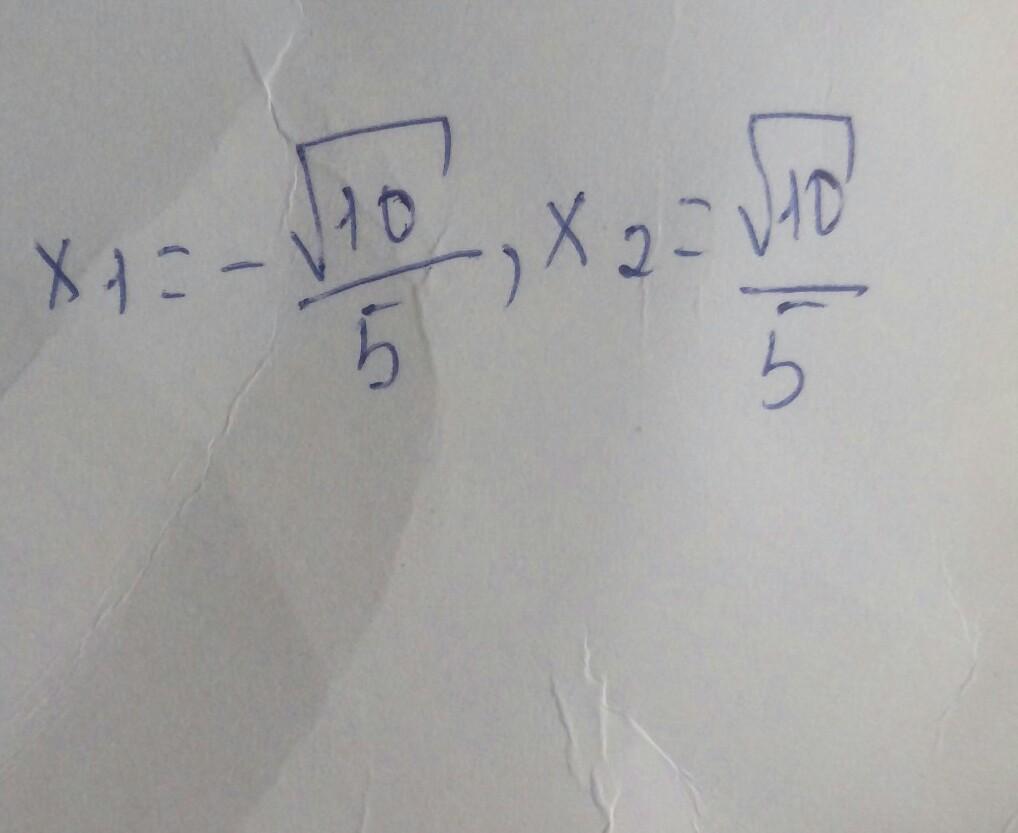 x₁ = -√10/5, x₂ = √10/5